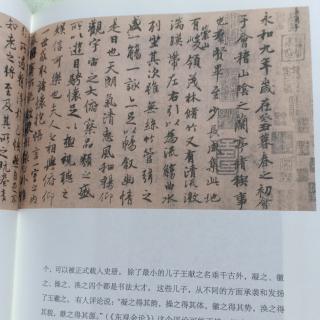 永和九年歲在癸丑暮春之初會
于會稽山陰之蘭亭脩稧事
也羣賢畢至少長咸集此地
有崇山峻領茂林脩竹又有清流激
湍暎帶左右引以為流觴曲水
列坐其次雖無絲竹管弦之
盛一觴一詠亦足以暢敘幽情
是日也天朗氣清惠風和暢仰
觀宇宙之大俯察品類之盛
所以遊目騁懷足以極視聽之
娛信可樂也夫人之相與俯仰
一世或取諸懷抱悟言一室之內
知老之將至及其所之既惓情
个，可以被正式载入史册。除了最小的儿子王献之名垂千古外，凝之、徽
之、操之、涣之四个都是书法大才。这些儿子，从不同的方面承袭和发扬
了王羲之。有人评论说："凝之得其韵，操之得其体，徽之得其势，涣之得
其貌，献之得其源。"（《东观余论》）这个评论可能